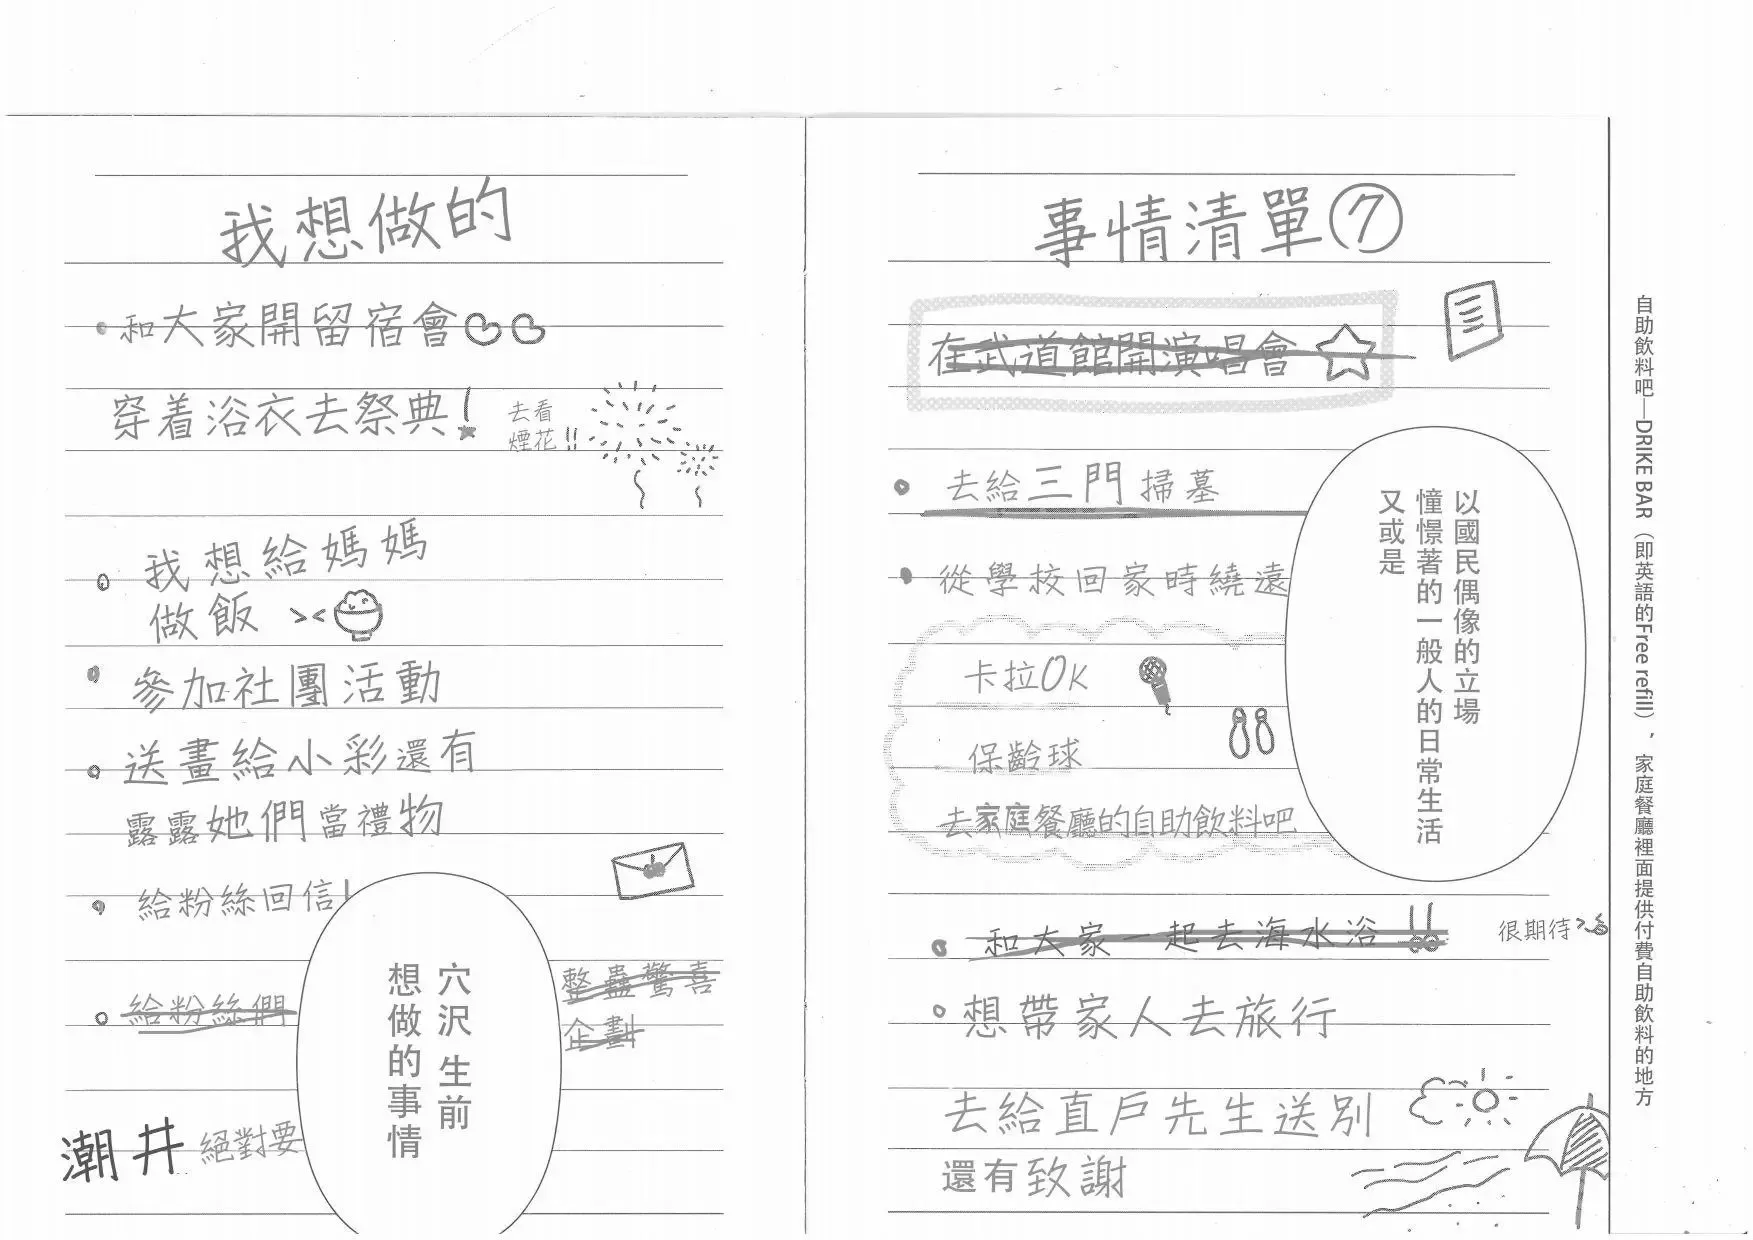 我想做的
事情清單⑦
和大家開留宿會
穿着浴衣去祭典!
去看
煙花!!
我想給媽媽
做飯 ><
參加社團活動
送畫給小彩還有
露露她們當禮物
給粉絲回信!
給粉絲們
整蠱驚喜
企劃
潮井 絕對要
穴沢 生前
想做的事情
在武道館開演唱會☆
去給三門掃墓
從學校回家時繞遠
卡拉OK
保齡球
去家庭餐廳的自助飲料吧
以國民偶像的立場
憧憬著的一般人的日常生活
又或是
和大家一起去海水浴!!
很期待
想帶家人去旅行
去給直戶先生送別
還有致謝
自助飲料吧—DRIKE BAR（即英語的Free refill），家庭餐廳裡面提供付費自助飲料的地方